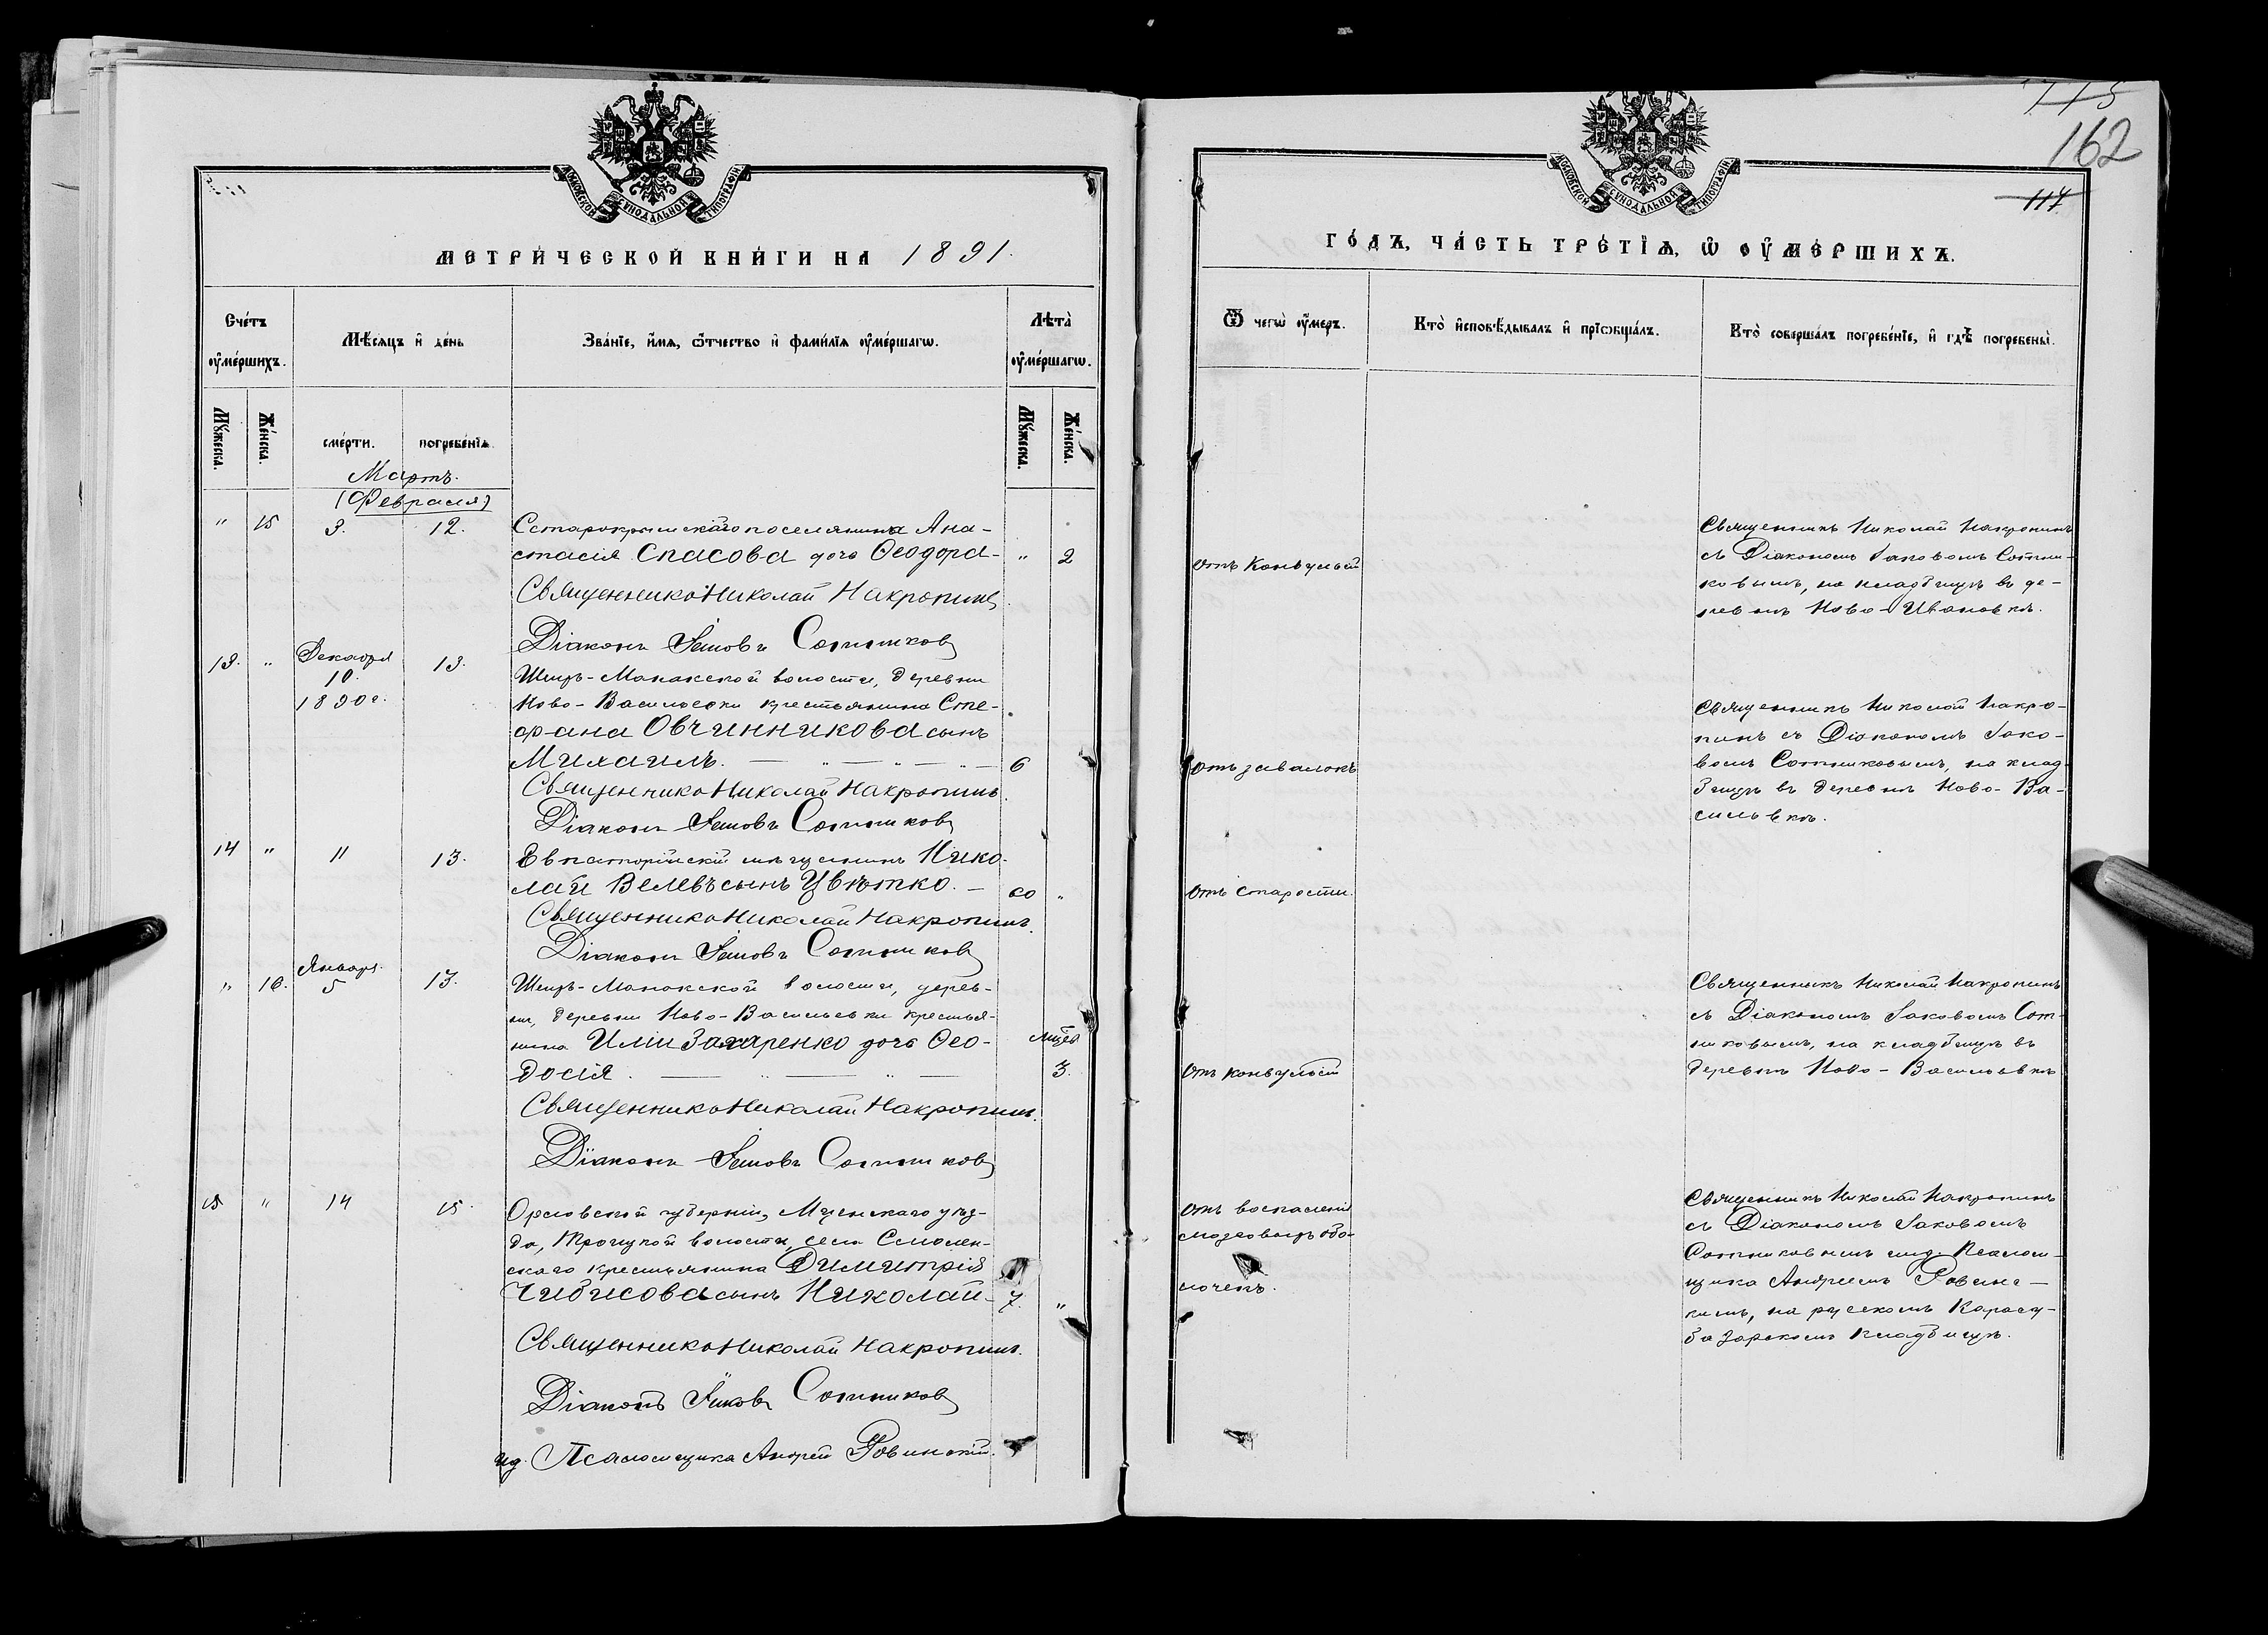 МОСКОВСКОЙ СѴНОДАЛЬНОЙ ТИПОГРАФІИ
МЕТРИ́ЧЕСКОЙ КНИ́ГИ НА 1891.
Сче́тъ ᲂу҆ме́ршихъ.
Мѣ́сяцъ и҆ де́нь
Зва́нїе, и҆́мѧ, ѻ҆́тчество и҆ фами́лїѧ ᲂу҆ме́ршагѡ.
Лѣта̀ ᲂу҆ме́ршагѡ.
Мꙋ́жеска.
Же́нска.
сме́рти.
погребе́нїѧ.
Мꙋ́жеска.
Же́нска.
Мартъ.
(Февраля)
" 15 3. 12. Старокрымскаго поселянина Ана-
стасія Спасова дочь Ѳеодора - " 2
Священникъ Николай Накропинъ
Діаконъ Іаковъ Сотниковъ
13. " Декабря 10. 1890 г. 13. Шейхъ-Монакской волости, деревни
Ново-Васильевки крестьянина Сте-
фана Овчинникова сынъ
Михаилъ. — " — " — " — 6
Священникъ Николай Накропинъ.
Діаконъ Іаковъ Сотниковъ
14 " 11 13. Евпаторійскій мѣщанинъ Нико-
лай Велевъ сынъ Цвѣтко. — 60 "
Священникъ Николай Накропинъ.
Діаконъ Іаковъ Сотниковъ
" 16. Января 5 13. Шейхъ-Монакской волости, дерев-
ни, деревни Ново-Васильевки крестья-
нина Иліи Захаренко дочь Ѳео- мцевъ
досія. — " — " — 3.
Священникъ Николай Накропинъ.
Діаконъ Іаковъ Сотниковъ
15 " 14 15. Орловской губерніи, Мценскаго уѣз-
да, Троицкой волости, села Смолен-
скаго крестьянина Димитрія
Чибисова сынъ Николай - 7. "
Священникъ Николай Накропинъ.
Діаконъ Іаковъ Сотниковъ
ид. Псаломщика Андрей Ровинскій.
115
162
117
МОСКОВСКОЙ СѴНОДАЛЬНОЙ ТИПОГРАФІИ
ГО́ДЪ, ЧА́СТЬ ТРЕ́ТЇѦ, Ѡ҆ ОУ҆МЕ́РШИХЪ.
Ѿ чегѡ̀ ᲂу҆́меръ.
Кто̀ и҆сповѣ́дывалъ и҆ прїѡбща́лъ.
Кто̀ соверша́лъ погребе́нїе, и҆ гдѣ̀ погребены̀.
отъ Конвульсій
Священникъ Николай Накропинъ
съ Діакономъ Іаковомъ Сотни-
ковымъ, на кладбищѣ въ де-
ревнѣ Ново-Ивановкѣ.
отъ завалокъ
Священникъ Николай Накро-
пинъ съ Діакономъ Іако-
вомъ Сотниковымъ, на клад-
бищѣ въ деревнѣ Ново-Ва-
сильевкѣ.
отъ старости.
отъ конвульсій
Священникъ Николай Накропинъ
съ Діакономъ Іаковомъ Сот-
никовымъ, на кладбищѣ въ
деревнѣ Ново-Васильевкѣ
отъ воспаленія
мозговыхъ обо-
лочекъ.
Священникъ Николай Накропинъ
съ Діакономъ Іаковомъ
Сотниковымъ и ид. Псалом-
щика Андреемъ Ровинс-
кимъ, на русскомъ Карасу-
базарскомъ кладбищѣ.